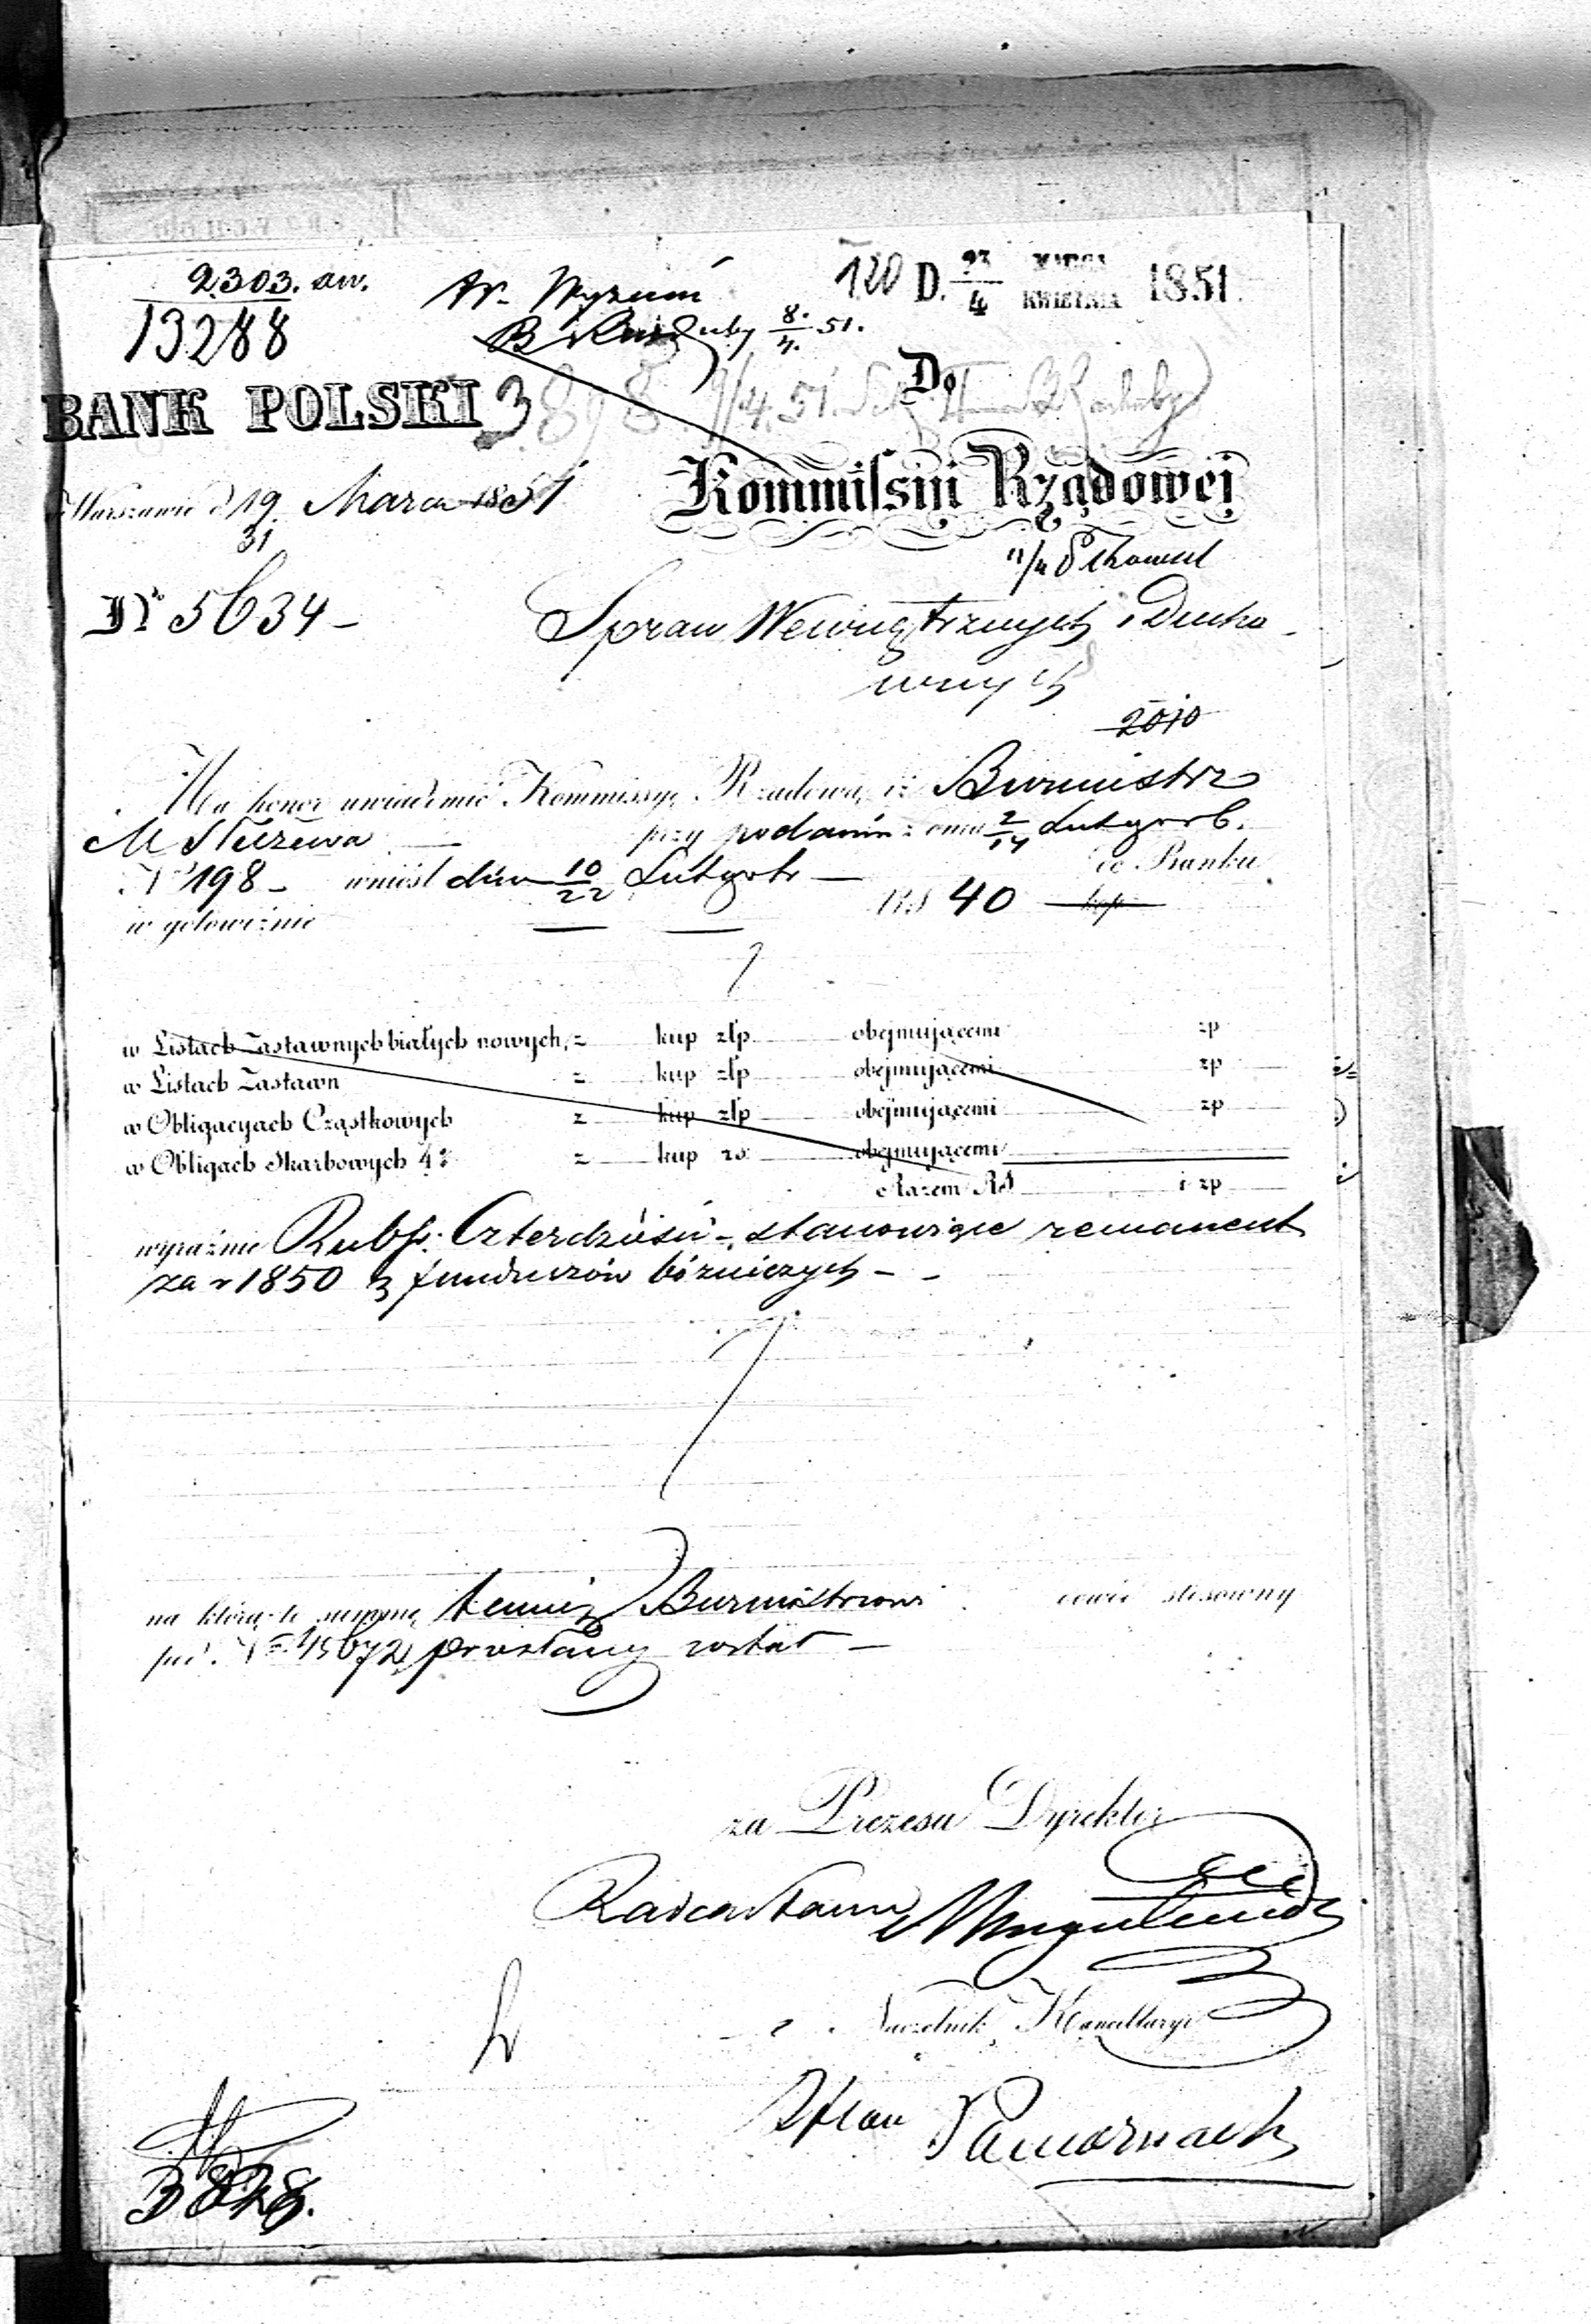 2303. aw.
13288
120 D. 23/4 MARCA KWIETNIA 1851.
W. Wyznań
8./4. 51.
BANK POLSKI
3898 9/4. 51.
Do
Warszawie d 19/31 Marca 1851
Kommissiii Rządowej
No 5634 –
Spraw Wewnętrznych i Ducho-
wnych
2010
Ma honor uwiadomić Kommissyę Rządową, iż Burmistrz
M przy podaniu z dnia 2/14 Lutego r b.
No 198 – wniósł dnia 10/22 Lutego tr – do Banku
w gotowiźnie RS 40 kop
w Listach Zastawnych białych nowych, z kup złp obejmującemi zp
w Listach Zastawn z kup złp obejmującemi zp
w Obligacyach Cząstkowych z kup złp obejmującemi zp
w Obligach Skarbowych 4% z kup rs. obejmującemi
Razem RS i zp
wyraźnie Rubsr. Czterdzieści – stanowiące remanent
za r 1850 z funduszów bóżniczych –
na którą to summę temuż Burmistrzowi dowód stosowny
pod No 15672 przesłany został –
za Prezesa Dyrektor
Radca Stanu
Naczelnik Kancellaryi
3828.